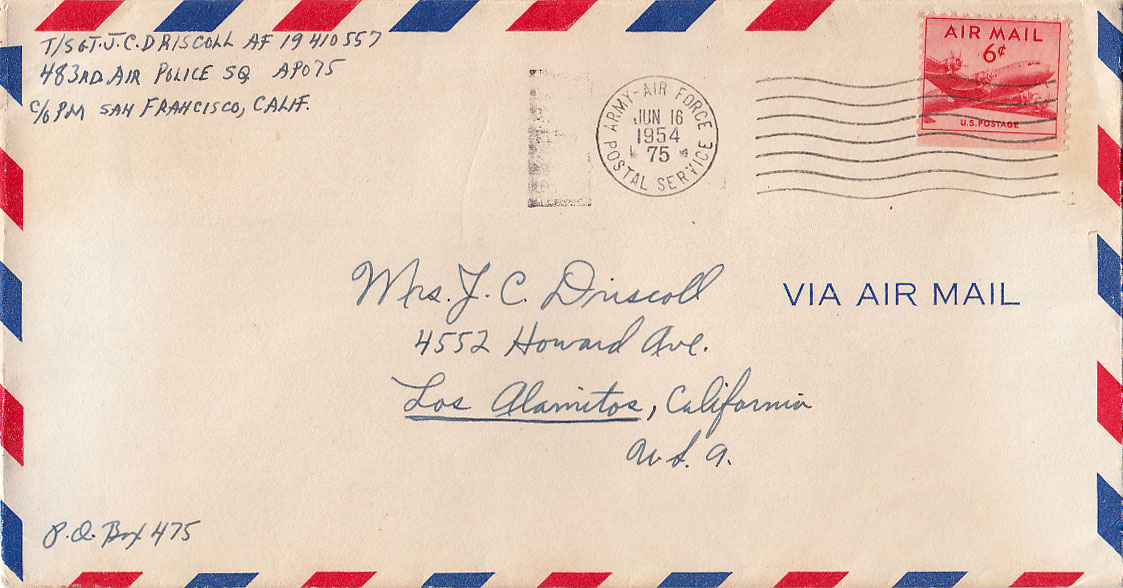 T/SGT. J. C. DRISCOLL AF 19410557
483RD AIR POLICE SQ APO 75
C/O PM SAN FRANCISCO, CALIF.
ARMY-AIR FORCE
JUN 16
1954
75
POSTAL SERVICE
AIR MAIL
6¢
U.S. POSTAGE
Mrs. J. C. Driscoll
4552 Howard Ave.
Los Alamitos, California
U. S. A.
VIA AIR MAIL
P.O. Box 475